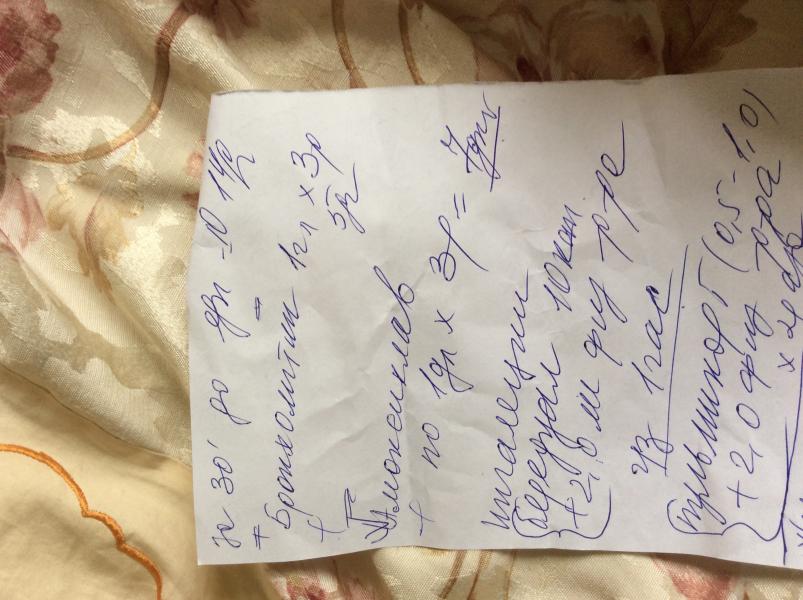 за 30' до еды - 10 1ч/р
Бронхолитин 1ч л х 3р
5р
Амоксиклав
по 1дл х 3р = 7дн
ингаляции
беродуал 10 кап.
+ 2,0 мл физ р-ра
Чз 1 час
пульмикорт (0,5 - 1,0)
+ 2,0 физ р-ра